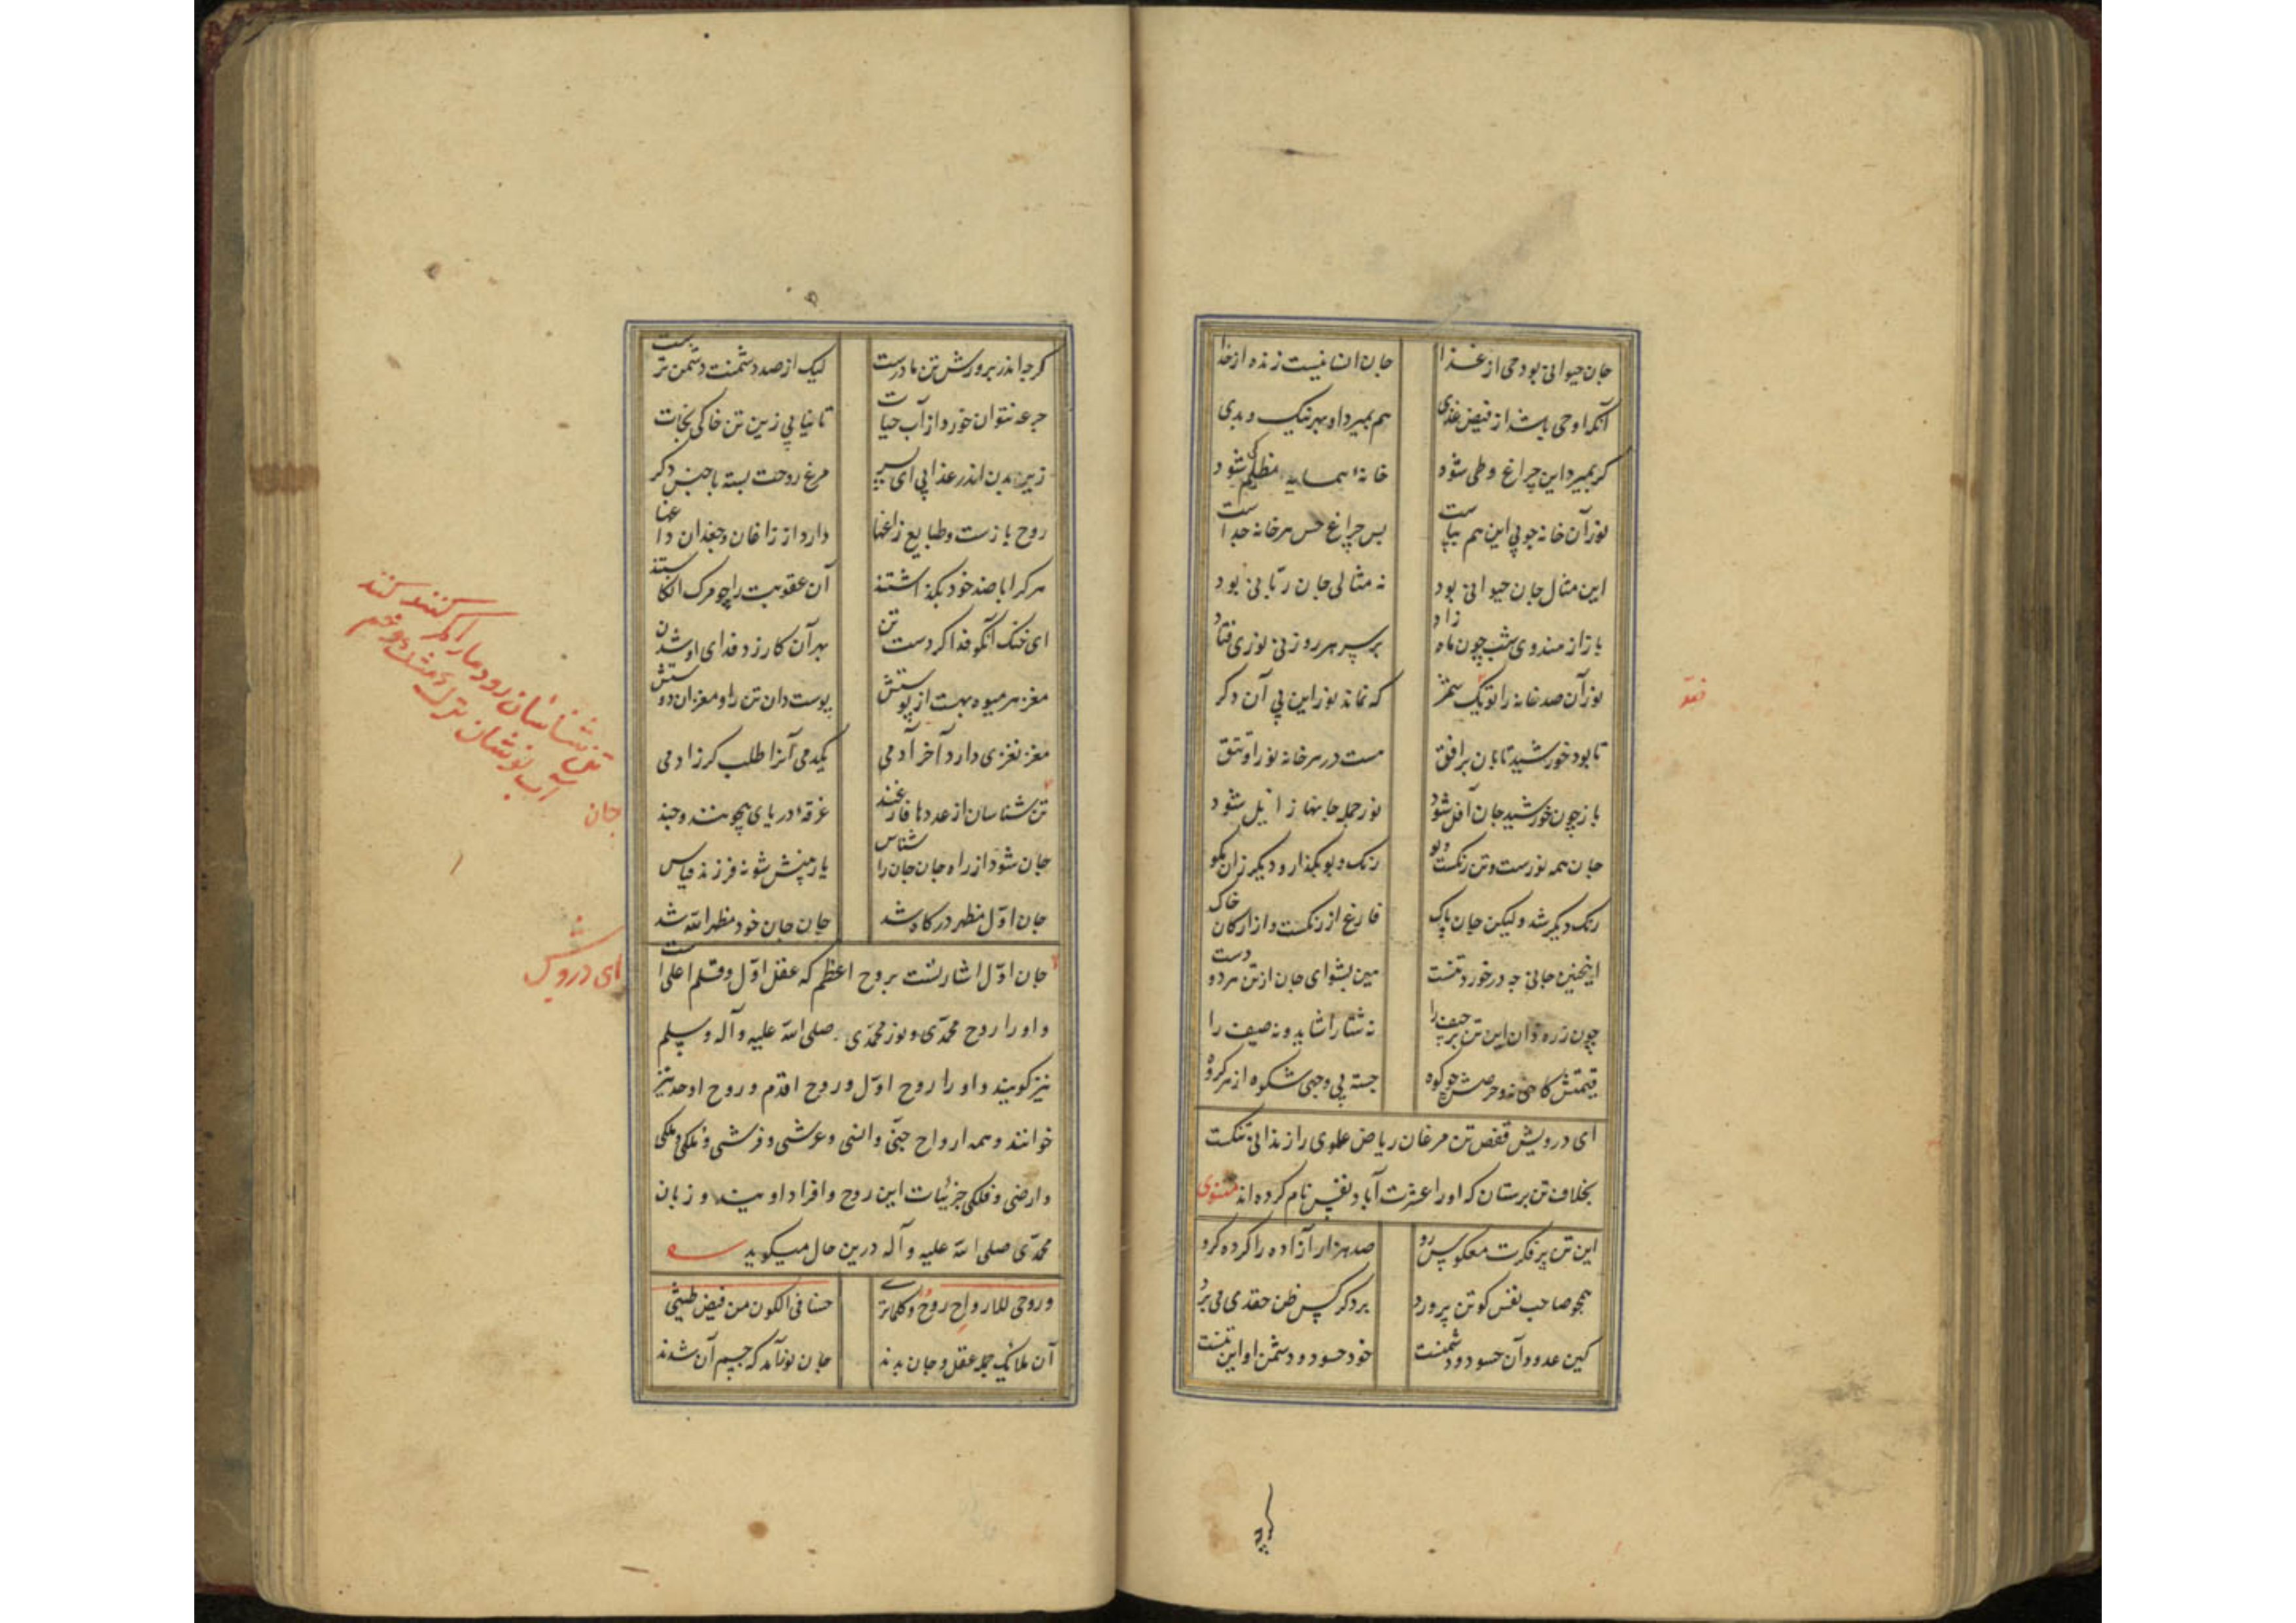 جان حیوانی بود حی از غذا جان انسانیست زنده از خدا
آنکه او حی باشد از فیض غذی هم بمیرد او بهر نیک و بدی
کر بمیرد این چراغ و طی شود خانه همسایه مظلم کی شود
نور آن خانه چو بی این هم بپاست بس چراغ حس هر خانه جداست
این مثال جان حیوانی بود نه مثالی جان ربانی بود
باز از هندوی شب چون ماه زاد بر سر هر روزنی نوری فتاد
نور آن صد خانه را تو یک شمر که نماند نور این بی آن دکر
تا بود خورشید تابان بر افق هست در هر خانه نور او قنق
باز چون خورشید جان آفل شود نور جمله جانها زایل شود
جان همه نورست و تن رنکست و بو رنک و بو بکذار و دیکر زان مکو
رنک دیکر شد ولیکن جان پاک فارغ از رنکست و از ارکان خاک
اینچنین جانی چه در خورد تنست هین بشو ای جان ازین تن هر دو دست
چون زره دان این تن پر حیف را نه شتا را شاید و نه صیف را
قیمتش کاهی نه و حرصش چو کوه جسته بی وجهی شکوه از هر کروه
ای درویش قفص تن مرغان ریاض علوی را زندانی تنکست
بخلاف تن پرستان که او را عشرت آباد نفس نام کرده اند مثنوی
این تن پر فکرت معکوس رو صد هزار آزاده را کرده کرو
همچو صاحب نفس کو تن پرورد بر دکر کس ظن حقدی می برد
کین عدو و آن حسود و دشمنست خود حسود و دشمن او این تنست
کرجه اندر پرورش تن مادرست لیک از صد دشمنت دشمن ترست
جرعه نتوان خورد از آب حیات تا نیابی زین تن خاکی نجات
زین بدن اندر عذابی ای پسر مرغ روحت بسته با جنس دکر
روح بازست و طبایع زاغها دارد از زاغان و جغدان داغها
هر کرا با ضد خود بکذاشتند آن عقوبت را چو مرک انکاشتند
ای خنک آنکو فدا کردست تن بهر آن کارزد فدای او شدن
مغز هر میوه بهست از پوستش پوست دان تن را و مغز ان دوستش
مغز نغزی دارد آخر آدمی یکدمی آنرا طلب کر زادمی
تن شناسان از عددها فارغند غرقه دریای بیچونند و چند
جان شو و از راه جان جان را شناس یار بینش شو نه فرزند قیاس
جان اول مظهر درکاه شد جان جان خود مظهر الله شد
جان اول اشارتست بروح اعظم که عقل اول و قلم اعلی است
و او را روح محمدی و نور محمدی صلی الله علیه و آله و سلم
نیز کویند و او را روح اول و روح اقدم و روح اوحد نیز
خوانند و همه ارواح جنی و انسی و عرشی و فرشی و ملکی و ملکی
و ارضی و فلکی جزئیات این روح و افراد اویند و زبان
محمدی صلی الله علیه و آله درین حال میکوید
و روحی للارواح روح و کلما تری حسنا فی الکون من فیض طینتی
آن ملائک جمله عقل و جان بدند جان نو آمد که جسم آن شدند
جان
ای درویش